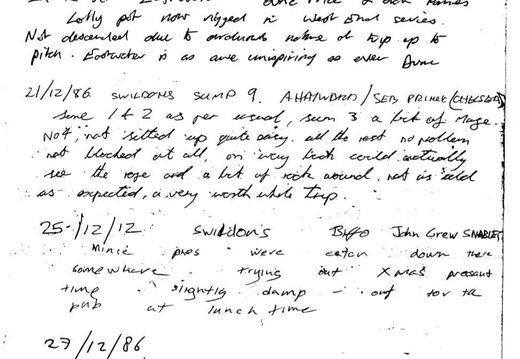 Lolly pot now rigged in west end series.
Not descended due to arduous nature of trip up to
pitch. Eastwater is as awe inspiring as ever
21/12/86 SWILDONS SUMP 9. A HAYWARD / SEB PRINCE (CHELSEA)
Sump 1 & 2 as per usual, sump 3 a bit of
No 4, not silted up quite easy. all the rest no problem
not blocked at all, on way back could actually
see the rope and a bit of rock around, not as cold
as expected, a very worth while trip.
25-/12/12 Swildons Biffo John Crew
Mince pies were eaten down there
somewhere trying out Xmas present
time slightly damp - out for the
pub at lunch time
27/12/86